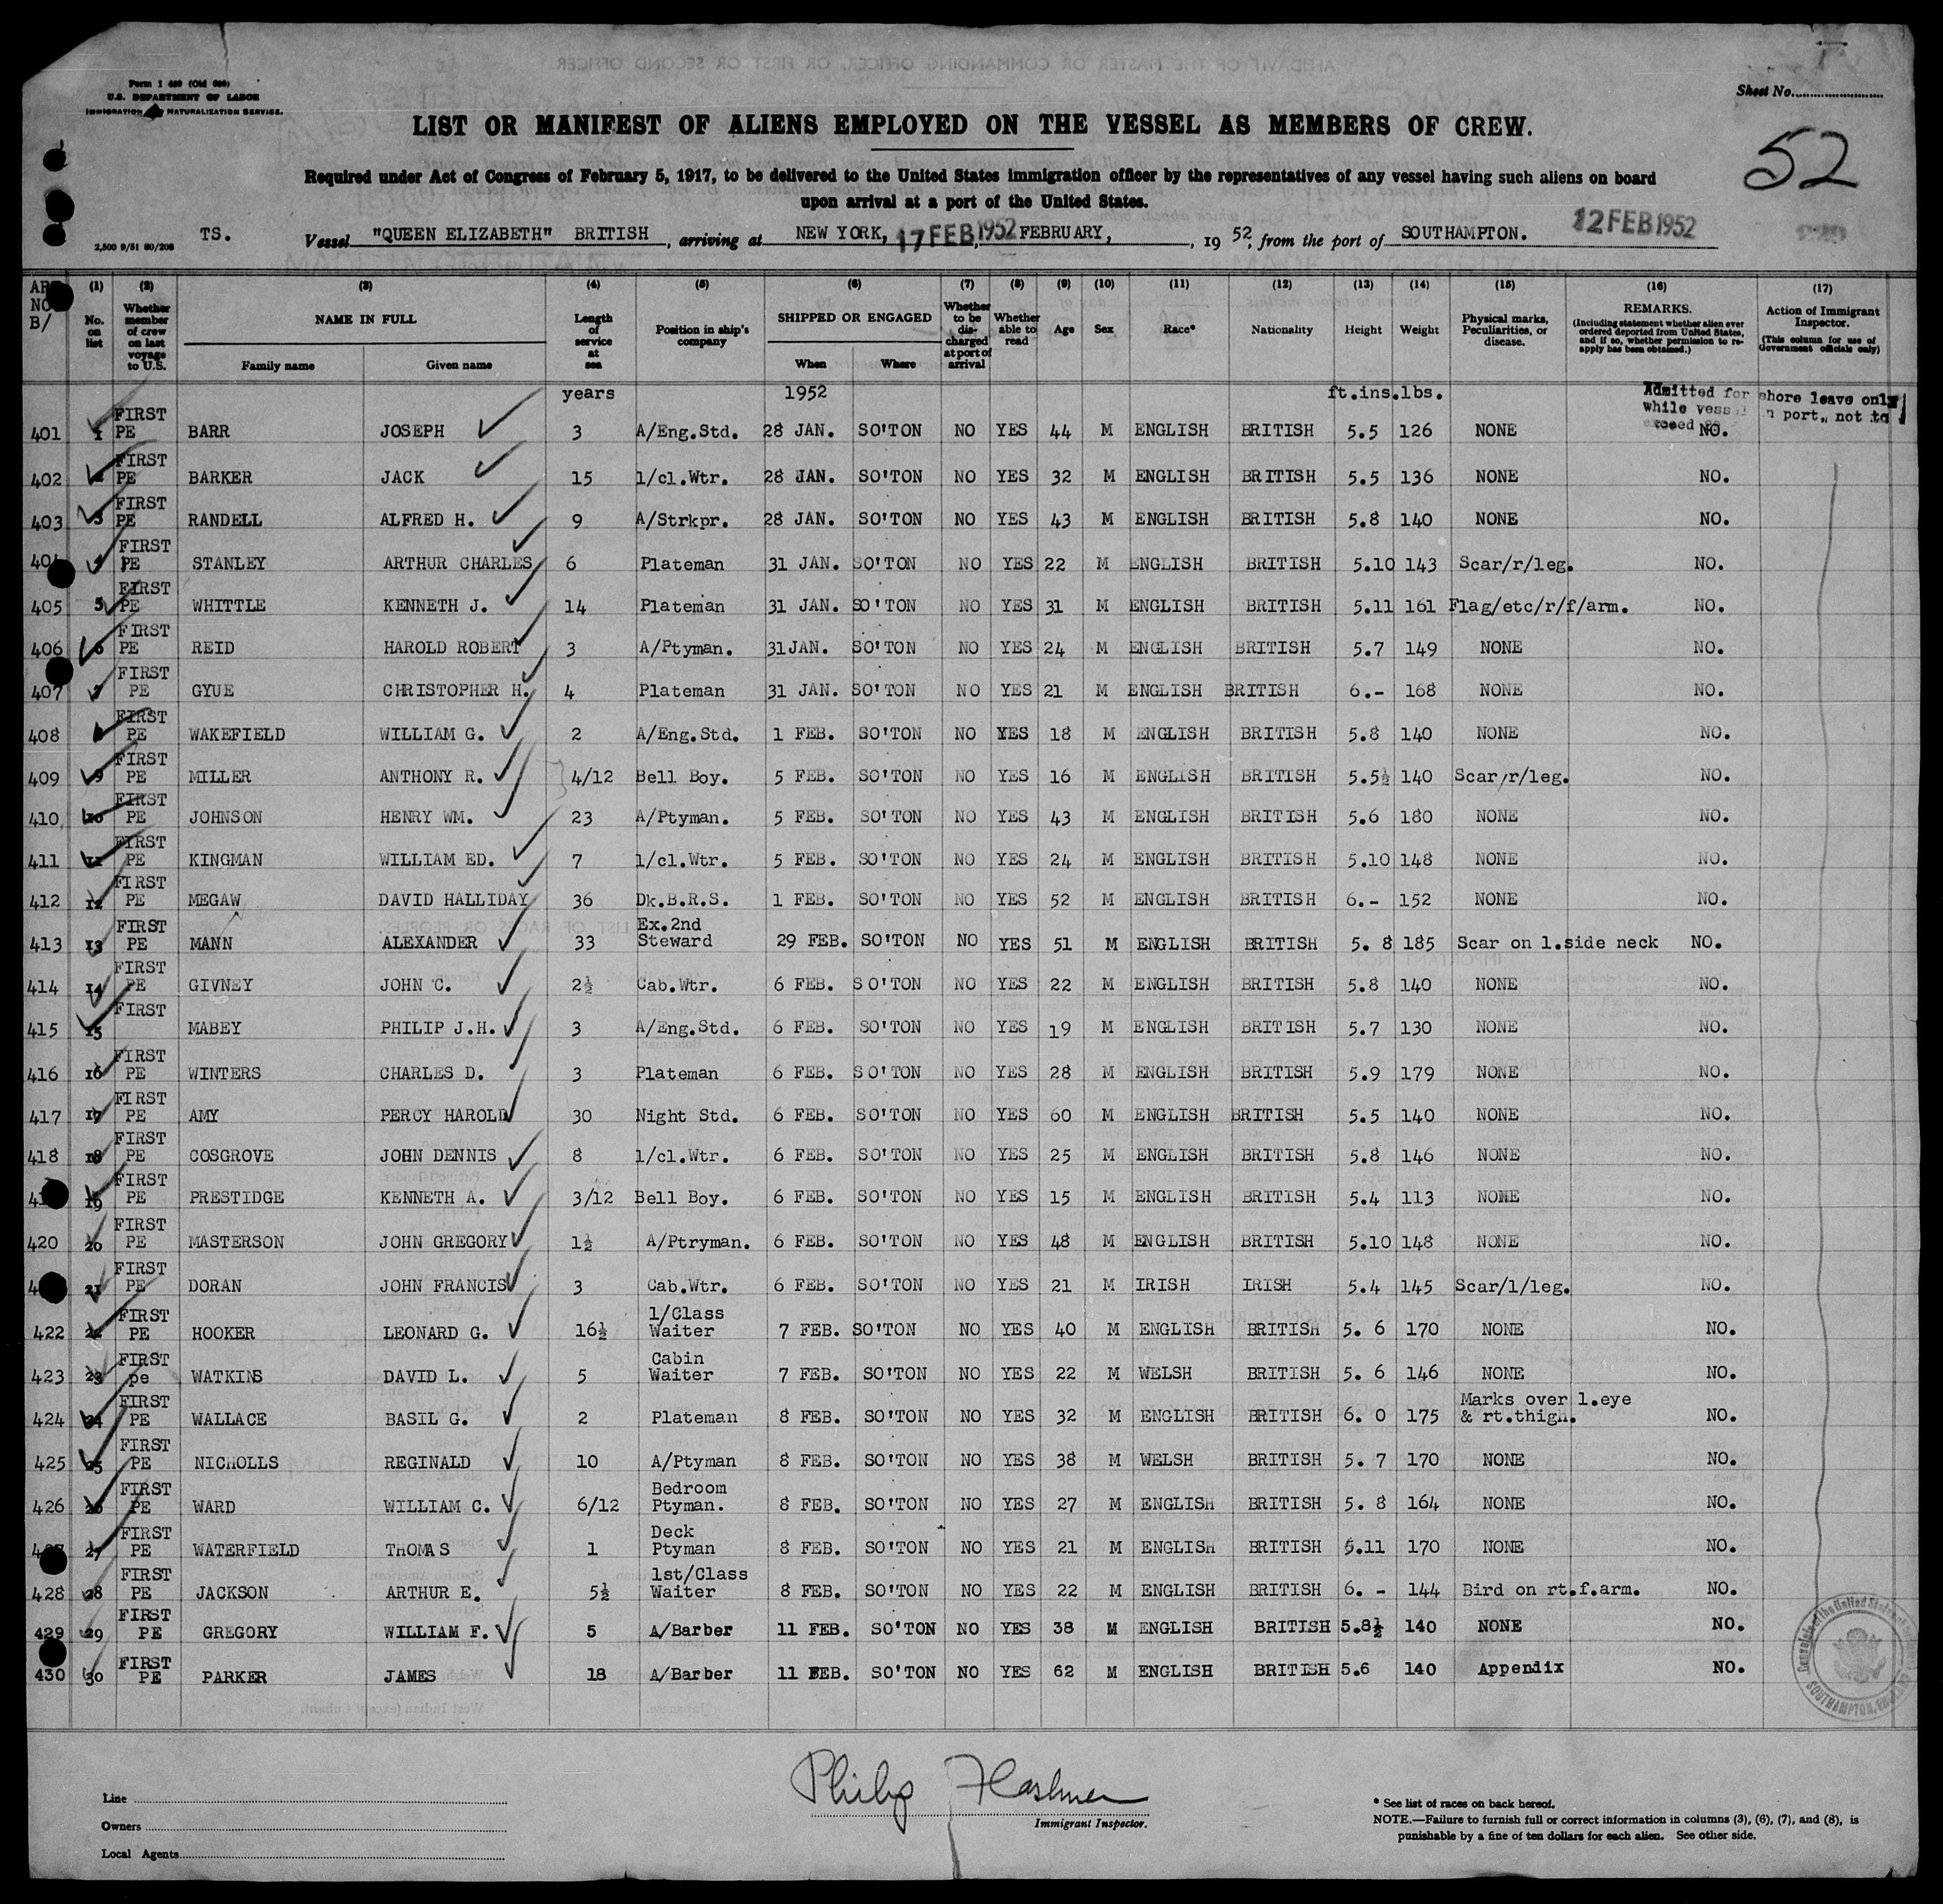 Form I 489 (Old 689)
U.S. DEPARTMENT OF LABOR
IMMIGRATION NATURALIZATION SERVICE.
Sheet No.
LIST OR MANIFEST OF ALIENS EMPLOYED ON THE VESSEL AS MEMBERS OF CREW.
52
Required under Act of Congress of February 5, 1917, to be delivered to the United States immigration officer by the representatives of any vessel having such aliens on board
upon arrival at a port of the United States.
2,500 9/51 80/208 TS. Vessel "QUEEN ELIZABETH" BRITISH, arriving at NEW YORK, 17 FEB 1952 FEBRUARY, , 19 52, from the port of SOUTHAMPTON. 12 FEB 1952
NO B/ (1) No. on list (2) Whether member of crew on last voyage to U.S. (3) NAME IN FULL Family name Given name (4) Length of service at sea (5) Position in ship's company (6) SHIPPED OR ENGAGED When Where (7) Whether to be discharged at port of arrival (8) Whether able to read (9) Age (10) Sex (11) Race* (12) Nationality (13) Height (14) Weight (15) Physical marks, Peculiarities, or disease. (16) REMARKS. (Including statement whether alien ever ordered deported from United States, and if so, whether permission to re-apply has been obtained.) (17) Action of Immigrant Inspector. (This column for use of Government officials only)
years 1952 ft.ins.lbs.
Admitted for shore leave only
while vessel in port, not to
401 1 FIRST PE BARR JOSEPH 3 A/Eng.Std. 28 JAN. SO'TON NO YES 44 M ENGLISH BRITISH 5.5 126 NONE NO.
402 2 FIRST PE BARKER JACK 15 1/cl.Wtr. 28 JAN. SO'TON NO YES 32 M ENGLISH BRITISH 5.5 136 NONE NO.
403 3 FIRST PE RANDELL ALFRED H. 9 A/Strkpr. 28 JAN. SO'TON NO YES 43 M ENGLISH BRITISH 5.8 140 NONE NO.
404 4 FIRST PE STANLEY ARTHUR CHARLES 6 Plateman 31 JAN. SO'TON NO YES 22 M ENGLISH BRITISH 5.10 143 Scar/r/leg. NO.
405 5 FIRST PE WHITTLE KENNETH J. 14 Plateman 31 JAN. SO'TON NO YES 31 M ENGLISH BRITISH 5.11 161 Flag/etc/r/f/arm. NO.
406 6 FIRST PE REID HAROLD ROBERT 3 A/Ptyman. 31JAN. SO'TON NO YES 24 M ENGLISH BRITISH 5.7 149 NONE NO.
407 7 FIRST PE GYUE CHRISTOPHER H. 4 Plateman 31 JAN. SO'TON NO YES 21 M ENGLISH BRITISH 6.- 168 NONE NO.
408 8 FIRST PE WAKEFIELD WILLIAM G. 2 A/Eng.Std. 1 FEB. SO'TON NO YES 18 M ENGLISH BRITISH 5.8 140 NONE NO.
409 9 FIRST PE MILLER ANTHONY R. 4/12 Bell Boy. 5 FEB. SO'TON NO YES 16 M ENGLISH BRITISH 5.5½ 140 Scar/r/leg. NO.
410 10 FIRST PE JOHNSON HENRY WM. 23 A/Ptyman. 5 FEB. SO'TON NO YES 43 M ENGLISH BRITISH 5.6 180 NONE NO.
411 11 FIRST PE KINGMAN WILLIAM ED. 7 1/cl.Wtr. 5 FEB. SO'TON NO YES 24 M ENGLISH BRITISH 5.10 148 NONE NO.
412 12 FIRST PE MEGAW DAVID HALLIDAY 36 Dk.B.R.S. 1 FEB. SO'TON NO YES 52 M ENGLISH BRITISH 6.- 152 NONE NO.
413 13 FIRST PE MANN ALEXANDER 33 Ex.2nd Steward 29 FEB. SO'TON NO YES 51 M ENGLISH BRITISH 5. 8 185 Scar on l.side neck NO.
414 14 FIRST PE GIVNEY JOHN C. 2½ Cab.Wtr. 6 FEB. SO'TON NO YES 22 M ENGLISH BRITISH 5.8 140 NONE NO.
415 15 FIRST MABEY PHILIP J.H. 3 A/Eng.Std. 6 FEB. SO'TON NO YES 19 M ENGLISH BRITISH 5.7 130 NONE NO.
416 16 FIRST PE WINTERS CHARLES D. 3 Plateman 6 FEB. SO'TON NO YES 28 M ENGLISH BRITISH 5.9 179 NONE NO.
417 17 FIRST PE AMY PERCY HAROLD 30 Night Std. 6 FEB. SO'TON NO YES 60 M ENGLISH BRITISH 5.5 140 NONE NO.
418 18 FIRST PE COSGROVE JOHN DENNIS 8 1/cl.Wtr. 6 FEB. SO'TON NO YES 25 M ENGLISH BRITISH 5.8 146 NONE NO.
19 FIRST PE PRESTIDGE KENNETH A. 3/12 Bell Boy. 6 FEB. SO'TON NO YES 15 M ENGLISH BRITISH 5.4 113 NONE NO.
420 20 FIRST PE MASTERSON JOHN GREGORY 1½ A/Ptryman. 6 FEB. SO'TON NO YES 48 M ENGLISH BRITISH 5.10 148 NONE NO.
21 FIRST PE DORAN JOHN FRANCIS 3 Cab.Wtr. 6 FEB. SO'TON NO YES 21 M IRISH IRISH 5.4 145 Scar/l/leg. NO.
422 22 FIRST PE HOOKER LEONARD G. 16½ 1/Class Waiter 7 FEB. SO'TON NO YES 40 M ENGLISH BRITISH 5. 6 170 NONE NO.
423 23 FIRST pe WATKINS DAVID L. 5 Cabin Waiter 7 FEB. SO'TON NO YES 22 M WELSH BRITISH 5. 6 146 NONE NO.
424 24 FIRST PE WALLACE BASIL G. 2 Plateman 8 FEB. SO'TON NO YES 32 M ENGLISH BRITISH 6. 0 175 Marks over l.eye & rt.thigh. NO.
425 25 FIRST PE NICHOLLS REGINALD 10 A/Ptyman 8 FEB. SO'TON NO YES 38 M WELSH BRITISH 5. 7 170 NONE NO.
426 26 FIRST PE WARD WILLIAM C. 6/12 Bedroom Ptyman. 8 FEB. SO'TON NO YES 27 M ENGLISH BRITISH 5. 8 164 NONE NO.
427 27 FIRST PE WATERFIELD THOMAS 1 Deck Ptyman 8 FEB. SO'TON NO YES 21 M ENGLISH BRITISH 5.11 170 NONE NO.
428 28 FIRST PE JACKSON ARTHUR E. 5½ 1st/Class Waiter 8 FEB. SO'TON NO YES 22 M ENGLISH BRITISH 6. - 144 Bird on rt.f.arm. NO.
429 29 FIRST PE GREGORY WILLIAM F. 5 A/Barber 11 FEB. SO'TON NO YES 38 M ENGLISH BRITISH 5.8½ 140 NONE NO.
430 30 FIRST PE PARKER JAMES 18 A/Barber 11 FEB. SO'TON NO YES 62 M ENGLISH BRITISH 5.6 140 Appendix NO.
SOUTHAMPTON, ENGLAND
Philip
Immigrant Inspector.
Line
Owners
Local Agents
* See list of races on back hereof.
NOTE.—Failure to furnish full or correct information in columns (3), (6), (7), and (8), is
punishable by a fine of ten dollars for each alien. See other side.